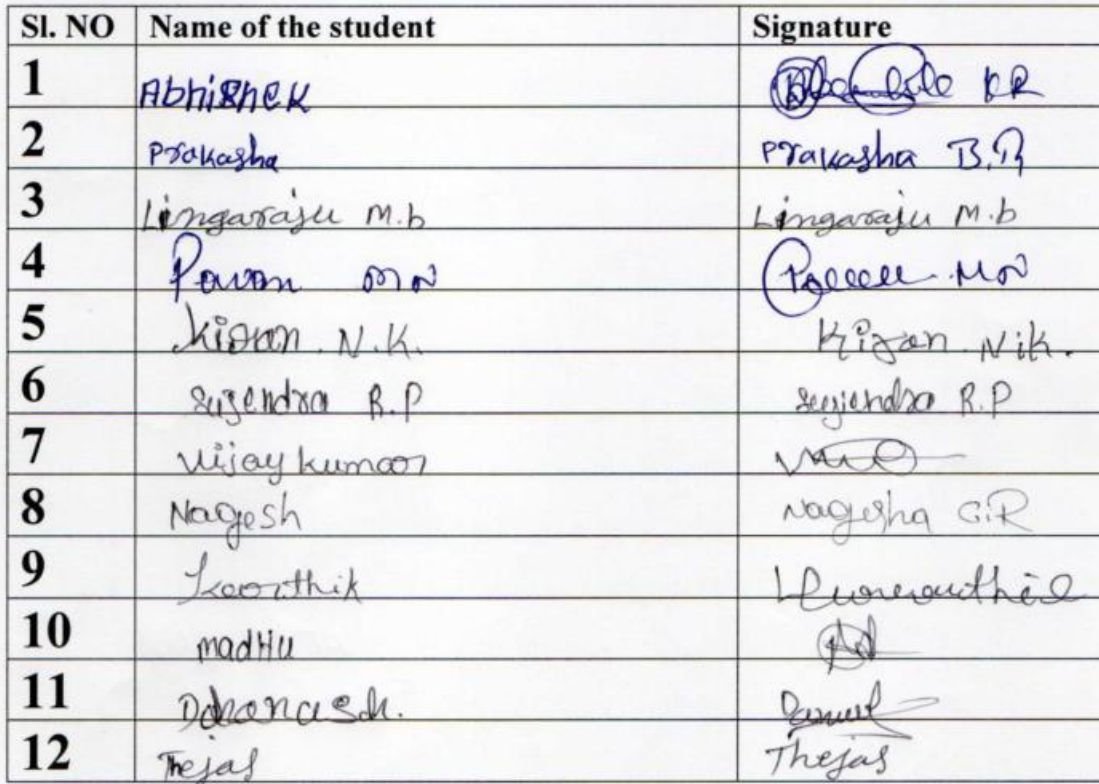 Sl. NO Name of the student Signature
1 Abhishek KR
2 Prakasha Prakasha B.R
3 Lingaraju M.b Lingaraju M.b
4 Pavan MN MN
5 Kiran. N.K. Kiran. N.K.
6 Sujendra R.P Sujendra R.P
7 Vijay kumar
8 Nagesh Nagesha G.R
9 Karthik
10 madHu
11
12 Thejas Thejas